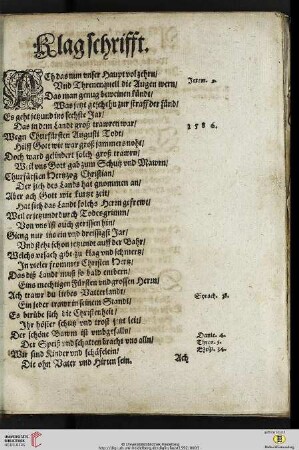 Klagschrifft.
ACh das nun unser Haupt vol zehrn/
Und Threnenquell die Augen wern/ Jerem. 9.
Das man genug beweinen kündt/
Was jetzt geschehn zur straff der sünd/
Es geht jetzund ins sechste Jar/
Das in dem Landt groß trawren war/ 1586.
Wegn Churfürsten Augusti Todt/
Hilff Gott wie war groß jammers noht/
Doch ward gelindert solch groß trawrn/
Weil uns Gott gab zum Schutz und Mawrn/
Churfürsten Hertzog Christian/
Der sich des Lands hat gnommen an/
Aber ach Gott wie kurtze zeit/
Hat sich das Landt solchs Herrn gefrewt/
Weil er jetzundt durch Todes grimm/
Von uns ist auch gerissen hin/
Gieng nur ins ein und dreissigst Jar/
Und steht schon jetzund auff der Bahr/
Welchs ursach gibt zu klag und schmertz/
In vieler frommer Christen Hertz
Das diß Landt muß so bald entbern/
Eins mechtigen Fürsten und grossen Herrn/
Ach trawr du liebes Vatterlandt/
Ein jeder trawr in seinem Standt/ Syrach. 38.
Es betrübt sich die Christenheit/
Ihr höster schutz und trost jtzt leit/
Der schöne Bawm ist umbgefalln/ Danie. 4.
Der Speiß und schatten bracht uns alln/ Thren. 5.
Wir sind Kinder und schäfelein/ Ezech. 34.
Die ohn Vater und Hirten sein. Ach